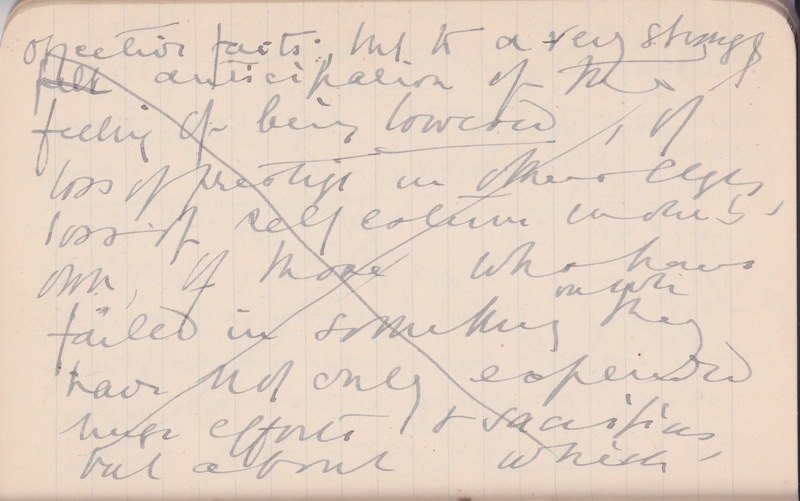 objective facts; but to a very strongly
felt anticipation of the
feeling of being lowered, of
loss of prestige in others eyes,
loss of self esteem in one's
own, of those who have
failed in something
on wh. they
have not only expended
huge efforts & sacrifices,
but about which